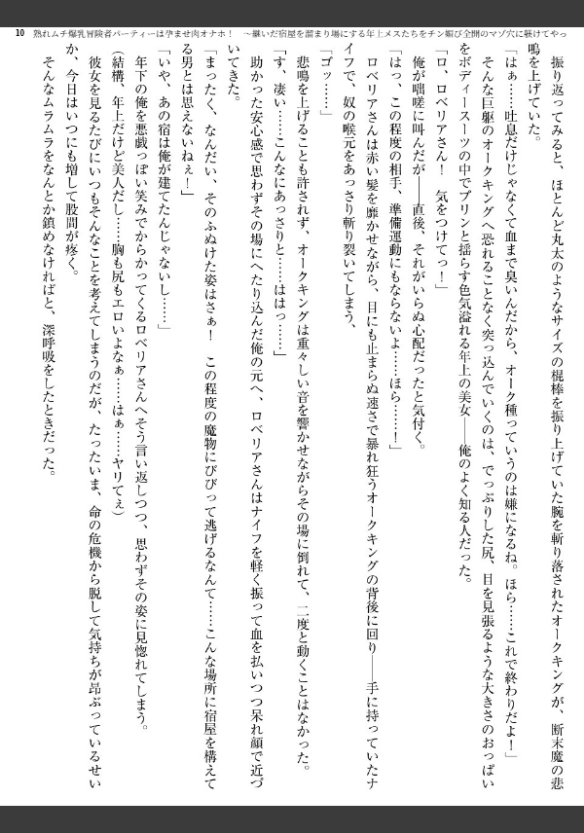 10 熟れムチ爆乳冒険者パーティーは孕ませ肉オナホ！　～継いだ宿屋を溜まり場にする年上メスたちをチン媚び全開のマゾ穴に躾けてやっ
振り返ってみると、ほとんど丸太のようなサイズの棍棒を振り上げていた腕を斬り落されたオークキングが、断末魔の悲
鳴を上げていた。
「はぁ……吐息だけじゃなくて血まで臭いんだから、オーク種っていうのは嫌になるね。ほら……これで終わりだよ！」
そんな巨躯のオークキングへ恐れることなく突っ込んでいくのは、でっぷりした尻、目を見張るような大きさのおっぱい
をボディースーツの中でブリンと揺らす色気溢れる年上の美女――俺のよく知る人だった。
「ロ、ロベリアさん！　気をつけてっ！」
俺が咄嗟に叫んだが――直後、それがいらぬ心配だったと気付く。
「はっ、この程度の相手、準備運動にもならないよ……ほら……！」
ロベリアさんは赤い髪を靡かせながら、目にも止まらぬ速さで暴れ狂うオークキングの背後に回り――手に持っていたナ
イフで、奴の喉元をあっさり斬り裂いてしまう、
「ゴッ……」
悲鳴を上げることも許されず、オークキングは重々しい音を響かせながらその場に倒れて、二度と動くことはなかった。
「す、凄い……こんなにあっさりと……ははっ……」
助かった安心感で思わずその場にへたり込んだ俺の元へ、ロベリアさんはナイフを軽く振って血を払いつつ呆れ顔で近づ
いてきた。
「まったく、なんだい、そのふぬけた姿はさぁ！　この程度の魔物にびびって逃げるなんて……こんな場所に宿屋を構えて
る男とは思えないねぇ！」
「いや、あの宿は俺が建てたんじゃないし……」
年下の俺を悪戯っぽい笑みでからかってくるロベリアさんへそう言い返しつつ、思わずその姿に見惚れてしまう。
（結構、年上だけど美人だし……胸も尻もエロいよなぁ……はぁ……ヤリてぇ）
彼女を見るたびにいつもそんなことを考えてしまうのだが、たったいま、命の危機から脱して気持ちが昂ぶっているせい
か、今日はいつにも増して股間が疼く。
そんなムラムラをなんとか鎮めなければと、深呼吸をしたときだった。